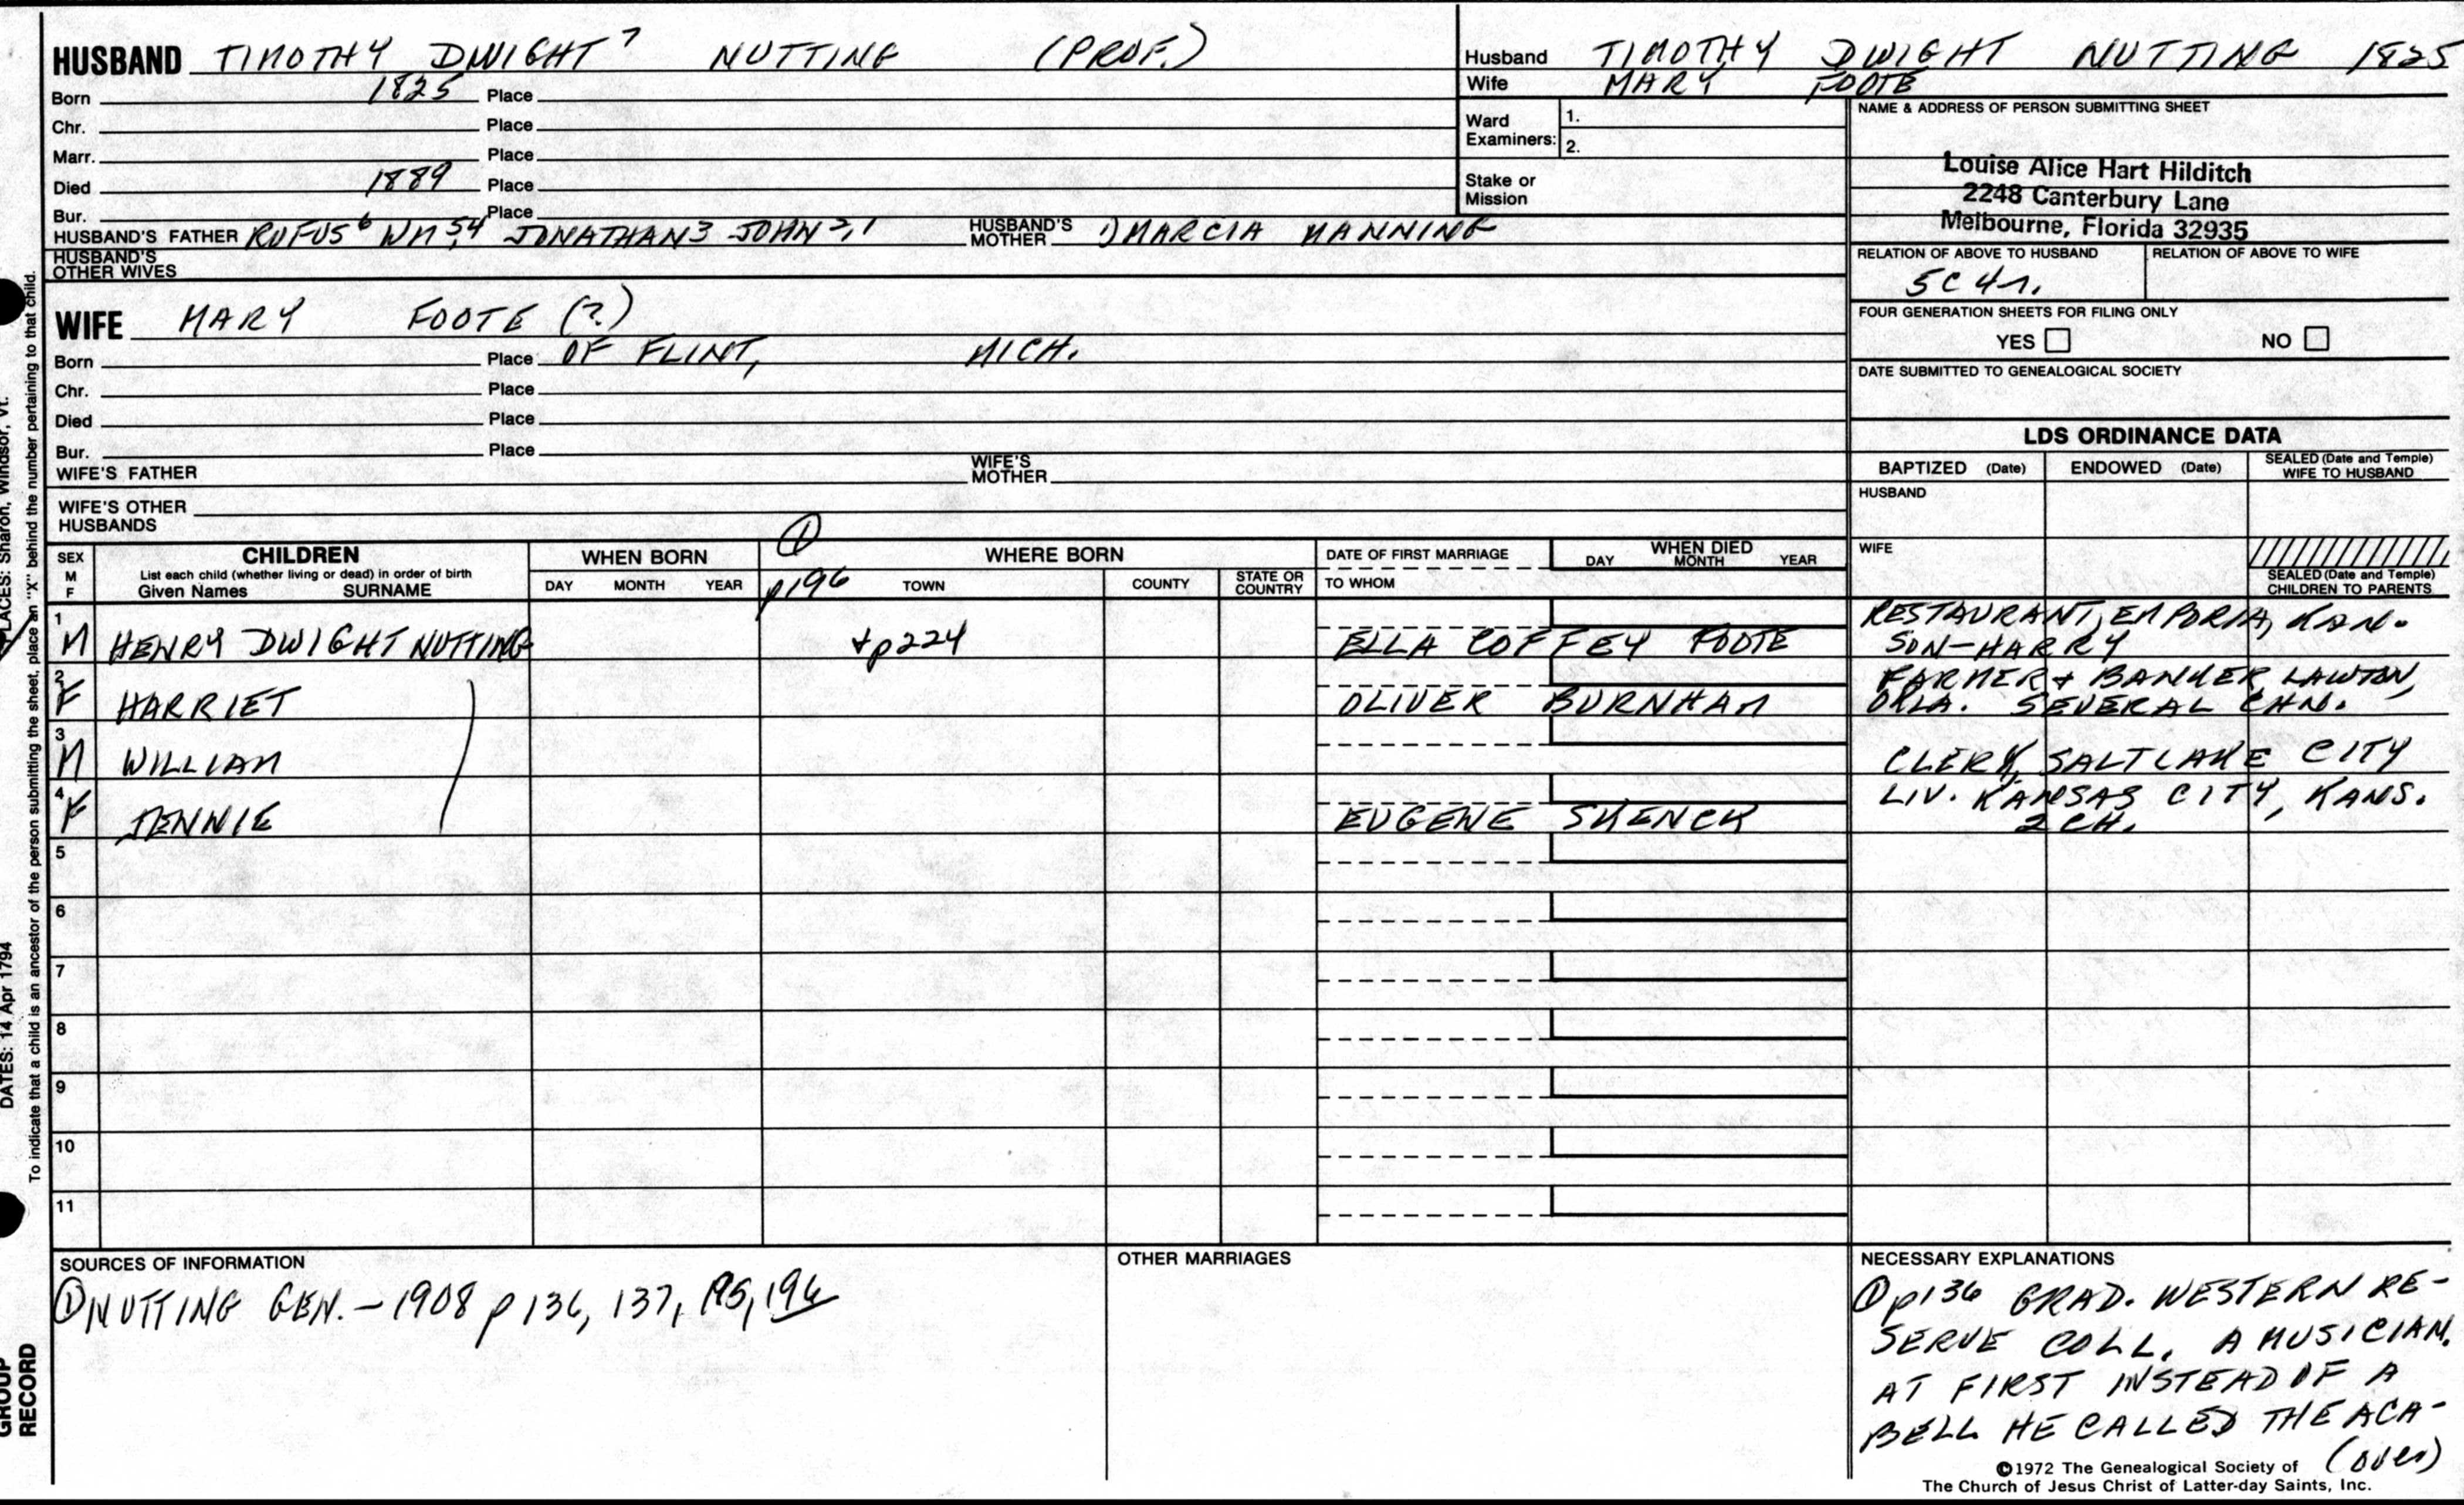 HUSBAND TIMOTHY DWIGHT⁷ NUTTING (PROF.)
Born 1825 Place
Chr. Place
Marr. Place
Died 1889 Place
Bur. Place
HUSBAND'S FATHER RUFUS⁶ WM⁵,⁴ JONATHAN³ JOHN²,¹ HUSBAND'S MOTHER 1) MARCIA MANNING
HUSBAND'S OTHER WIVES
WIFE MARY FOOTE (?)
Born Place OF FLINT, MICH.
Chr. Place
Died Place
Bur. Place
WIFE'S FATHER WIFE'S MOTHER
WIFE'S OTHER HUSBANDS
Husband TIMOTHY DWIGHT NUTTING 1825
Wife MARY FOOTE
Ward Examiners: 1.
2.
Stake or Mission
NAME & ADDRESS OF PERSON SUBMITTING SHEET
Louise Alice Hart Hilditch
2248 Canterbury Lane
Melbourne, Florida 32935
RELATION OF ABOVE TO HUSBAND RELATION OF ABOVE TO WIFE
5C 4r.
FOUR GENERATION SHEETS FOR FILING ONLY
YES NO
DATE SUBMITTED TO GENEALOGICAL SOCIETY
LDS ORDINANCE DATA
BAPTIZED (Date) ENDOWED (Date) SEALED (Date and Temple) WIFE TO HUSBAND
HUSBAND
WIFE
SEALED (Date and Temple) CHILDREN TO PARENTS
SEX M F
CHILDREN
List each child (whether living or dead) in order of birth
Given Names SURNAME
WHEN BORN
DAY MONTH YEAR
① p196
WHERE BORN
TOWN COUNTY STATE OR COUNTRY
DATE OF FIRST MARRIAGE
TO WHOM
WHEN DIED
DAY MONTH YEAR
1 M HENRY DWIGHT NUTTING +p224 ELLA COFFEY FOOTE RESTAURANT, EMPORIA, KAN.
SON-HARRY
2 F HARRIET OLIVER BURNHAM FARMER + BANKER LAWTON,
OKLA. SEVERAL CHN.
3 M WILLIAM CLERK, SALT LAKE CITY
4 F JENNIE EUGENE SKENCK LIV. KANSAS CITY, KANS.
2 CH.
5
6
7
8
9
10
11
SOURCES OF INFORMATION
① NUTTING GEN. - 1908 p 136, 137, 195, 196
OTHER MARRIAGES
NECESSARY EXPLANATIONS
① p136 GRAD. WESTERN RE-
SERVE COLL. A MUSICIAN.
AT FIRST INSTEAD OF A
BELL HE CALLED THE ACA-
(over)
©1972 The Genealogical Society of
The Church of Jesus Christ of Latter-day Saints, Inc.
PLACES: Sharon, Windsor, Vt.
DATES: 14 Apr 1794
To indicate that a child is an ancestor of the person submitting the sheet, place an "X" behind the number pertaining to that child.
GROUP
RECORD